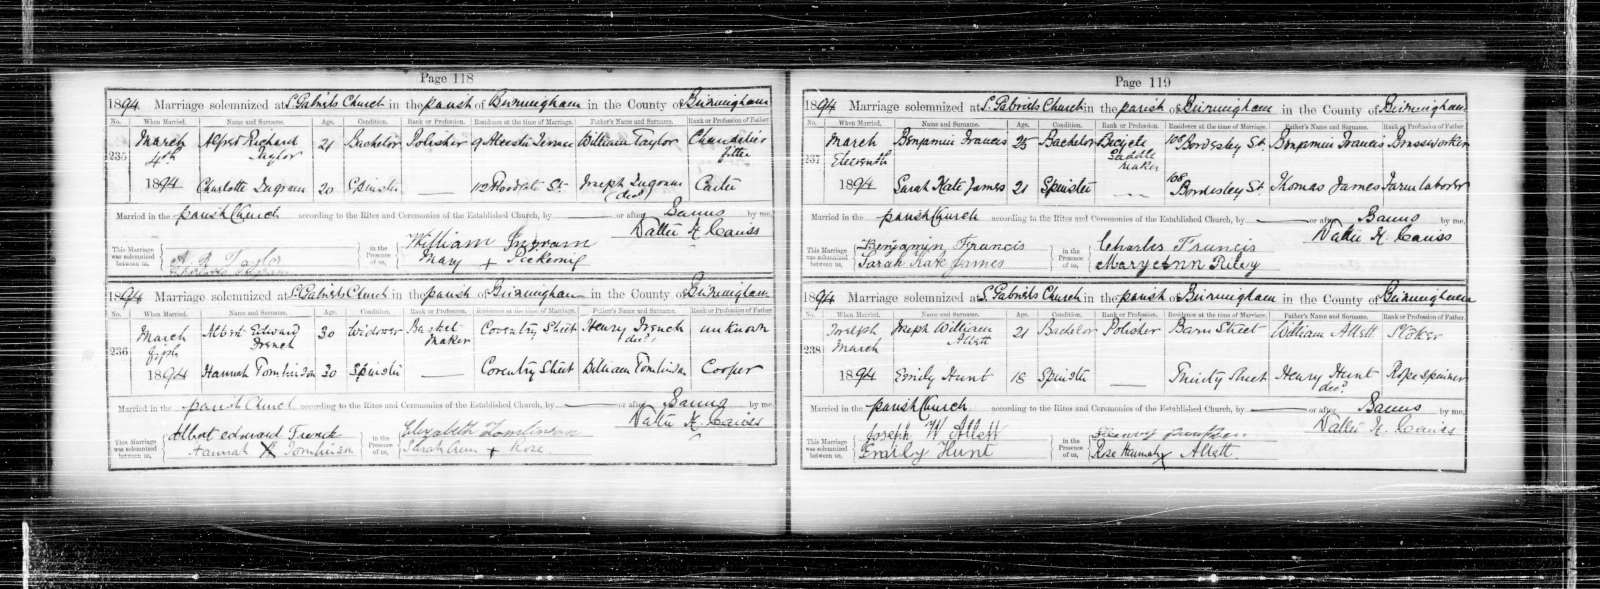 Page 118
1894 Marriage solemnized at St Gabriels Church in the parish of Birmingham in the County of Birmingham
No. When Married. Name and Surname. Age. Condition. Rank or Profession. Residence at the time of Marriage. Father's Name and Surname. Rank or Profession of Father.
235 March 4th 1894 Alfred Richard Taylor 21 Bachelor Polisher 9 Terrace William Taylor Chandelier fitter
Charlotte Ingram 20 Spinster — 112 St. Joseph Ingram (decd) Carter
Married in the parish Church according to the Rites and Ceremonies of the Established Church, by — or after Banns by me,
Walter H. Caviss
This Marriage was solemnized between us, A. R. Taylor in the Presence of us, William Ingram
Mary +
1894 Marriage solemnized at St Gabriels Church in the parish of Birmingham in the County of Birmingham
No. When Married. Name and Surname. Age. Condition. Rank or Profession. Residence at the time of Marriage. Father's Name and Surname. Rank or Profession of Father.
236 March fifth 1894 Albert Edward French 30 Widower Basket maker Coventry Street Henry French decd unknown
Hannah Tomlinson 30 Spinster — Coventry Street William Tomlinson Cooper
Married in the parish Church according to the Rites and Ceremonies of the Established Church, by — or after Banns by me,
Walter H. Caviss
This Marriage was solemnized between us, Albert edward French in the Presence of us, Elizabeth Tomlinson
Hannah X Tomlinson Sarah Ann + Rose
Page 119
1894 Marriage solemnized at St Gabriels Church in the parish of Birmingham in the County of Birmingham
No. When Married. Name and Surname. Age. Condition. Rank or Profession. Residence at the time of Marriage. Father's Name and Surname. Rank or Profession of Father.
237 March Eleventh 1894 Benjamin Francis 25 Bachelor Bicycle Saddle maker 108 Bordesley St. Benjamin Francis Brassworker
Sarah Kate James 21 Spinster — 108 Bordesley St. Thomas James Farm laborer
Married in the parish Church according to the Rites and Ceremonies of the Established Church, by — or after Banns by me,
Walter H. Caviss
This Marriage was solemnized between us, Benjamin Francis in the Presence of us, Charles Francis
Sarah Kate James Mary Ann Riley
1894 Marriage solemnized at St Gabriels Church in the parish of Birmingham in the County of Birmingham
No. When Married. Name and Surname. Age. Condition. Rank or Profession. Residence at the time of Marriage. Father's Name and Surname. Rank or Profession of Father.
238 March 1894 Joseph William Allett 21 Bachelor Polisher Barn Street William Allett Stoker
Emily Hunt 18 Spinster — Trinity Street Henry Hunt decd Rope spinner
Married in the parish Church according to the Rites and Ceremonies of the Established Church, by — or after Banns by me,
Walter H. Caviss
This Marriage was solemnized between us, Joseph W Allett in the Presence of us,
Emily Hunt Rose Hannah X Allett